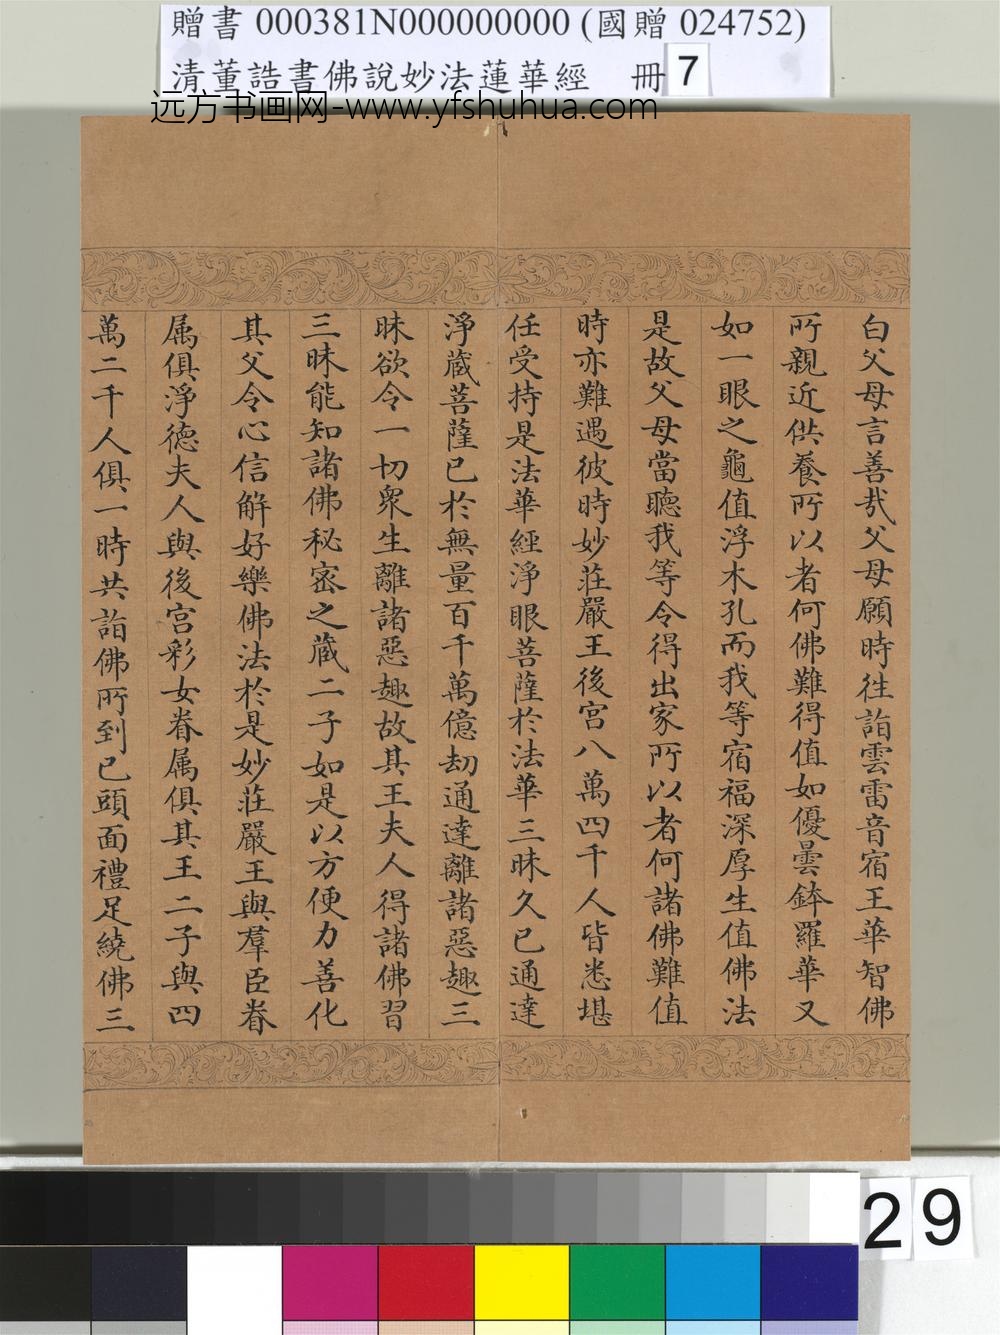 贈書 000381N000000000 (國贈 024752)
清董誥書佛說妙法蓮華經 冊 7
远方书画网-www.yfshuhua.com
白父母言善哉父母願時往詣雲雷音宿王華智佛
所親近供養所以者何佛難得值如優曇鉢羅華又
如一眼之龜值浮木孔而我等宿福深厚生值佛法
是故父母當聽我等令得出家所以者何諸佛難值
時亦難遇彼時妙莊嚴王後宮八萬四千人皆悉堪
任受持是法華經淨眼菩薩於法華三昧久已通達
淨藏菩薩已於無量百千萬億劫通達離諸惡趣三
昧欲令一切眾生離諸惡趣故其王夫人得諸佛習
三昧能知諸佛秘密之藏二子如是以方便力善化
其父令心信解好樂佛法於是妙莊嚴王與羣臣眷
属俱淨德夫人與後宮彩女眷属俱其王二子與四
萬二千人俱一時共詣佛所到已頭面禮足繞佛三
29